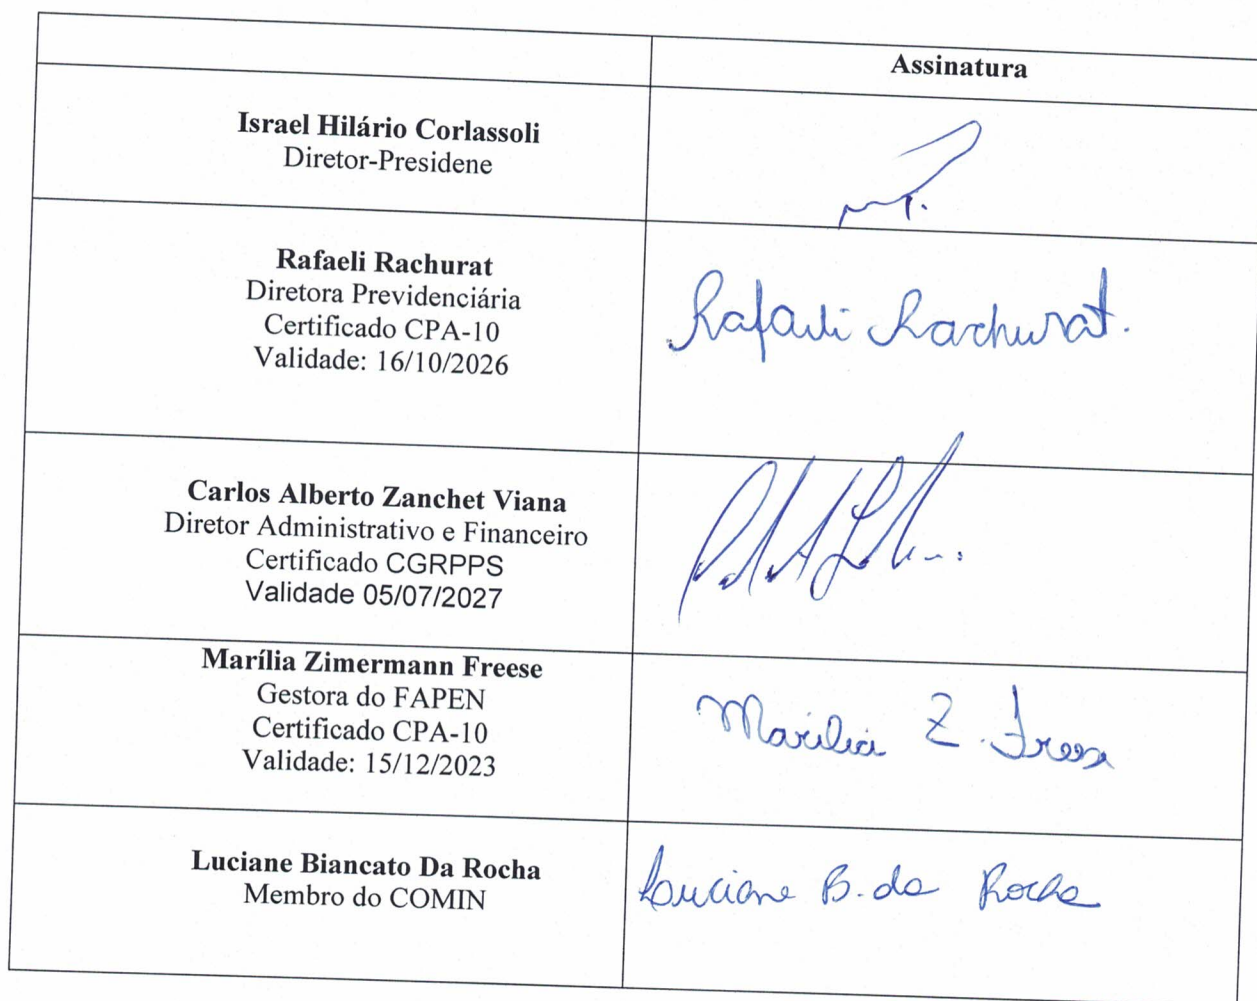 Assinatura
Israel Hilário Corlassoli
Diretor-Presidene
Rafaeli Rachurat
Diretora Previdenciária
Certificado CPA-10
Validade: 16/10/2026
Rafaeli Rachurat.
Carlos Alberto Zanchet Viana
Diretor Administrativo e Financeiro
Certificado CGRPPS
Validade 05/07/2027
Marília Zimermann Freese
Gestora do FAPEN
Certificado CPA-10
Validade: 15/12/2023
Marilia Z. Freese
Luciane Biancato Da Rocha
Membro do COMIN
Luciane B. da Rocha